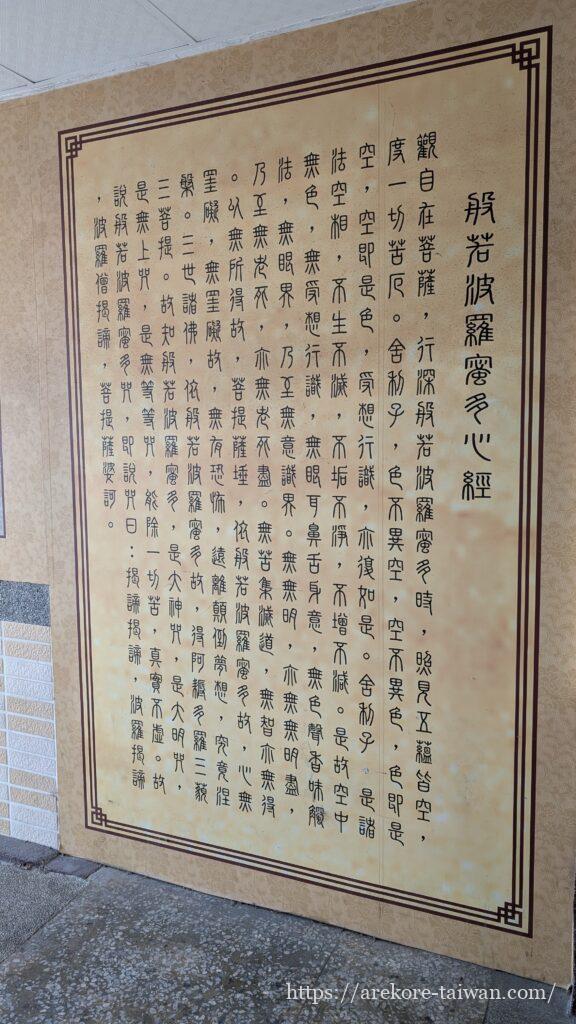 般若波羅蜜多心經
觀自在菩薩，行深般若波羅蜜多時，照見五蘊皆空，
度一切苦厄。舍利子，色不異空，空不異色，色即是
空，空即是色，受想行識，亦復如是。舍利子。是諸
法空相，不生不滅，不垢不淨，不增不減。是故空中
無色，無受想行識，無眼耳鼻舌身意，無色聲香味觸
法，無眼界，乃至無意識界。無無明，亦無無明盡，
乃至無老死，亦無老死盡。無苦集滅道，無智亦無得
。以無所得故，菩提薩埵，依般若波羅蜜多故，心無
罣礙，無罣礙故，無有恐怖，遠離顛倒夢想，究竟涅
槃。三世諸佛，依般若波羅蜜多故，得阿耨多羅三藐
三菩提。故知般若波羅蜜多，是大神咒，是大明咒，
是無上咒，是無等等咒，能除一切苦，真實不虛。故
說般若波羅蜜多咒，即說咒曰：揭諦揭諦，波羅揭諦
，波羅僧揭諦，菩提薩婆訶。
https://arekore-taiwan.com/